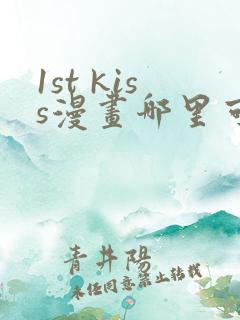 1st kis
s漫畫哪里可
青井陽
未经同意禁止转载